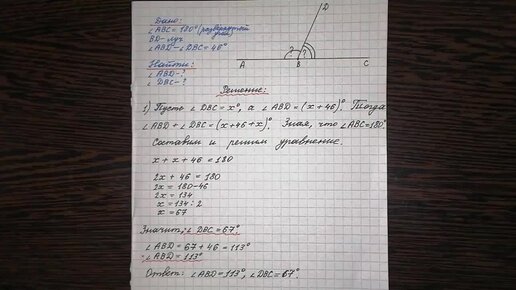 Дано:
∠ABC = 180° (развёрнутый
угол)
BD - луч
∠ABD - ∠DBC = 46°
Найти:
∠ABD - ?
∠DBC - ?
D
? ?
A B C
Решение:
1) Пусть ∠DBC = x°, а ∠ABD = (x+46)°. Тогда
∠ABD + ∠DBC = (x+46+x)°. Зная, что ∠ABC = 180°
Составим и решим уравнение.
x + x + 46 = 180
2x + 46 = 180
2x = 180 - 46
2x = 134
x = 134 : 2
x = 67
Значит, ∠DBC = 67°
∠ABD = 67 + 46 = 113°
∠ABD = 113°
Ответ: ∠ABD = 113°, ∠DBC = 67°.